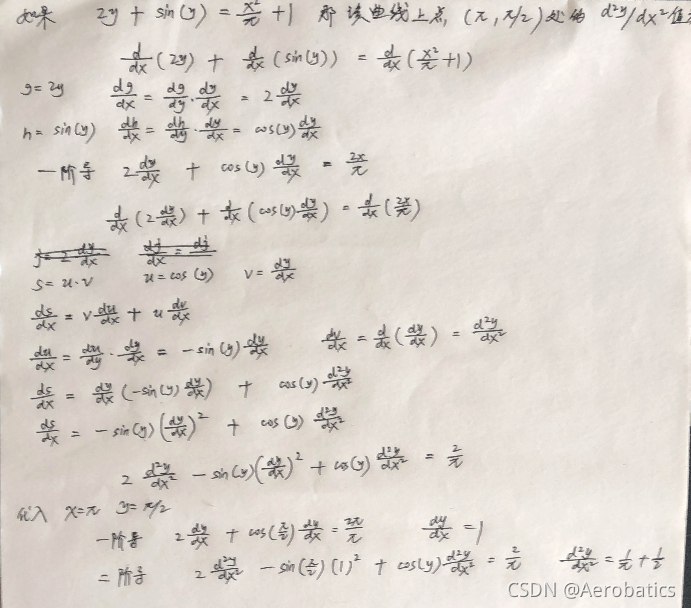 如果 2y + sin(y) = x²/π + 1 那该曲线上点, (π, π/2) 处的 d²y/dx² 值
d/dx (2y) + d/dx (sin(y)) = d/dx (x²/π + 1)
g = 2y dg/dx = dg/dy · dy/dx = 2 dy/dx
h = sin(y) dh/dx = dh/dy · dy/dx = cos(y) dy/dx
一阶导 2 dy/dx + cos(y) dy/dx = 2x/π
d/dx (2 dy/dx) + d/dx (cos(y) dy/dx) = d/dx (2x/π)
s = u·v u = cos(y) v = dy/dx
ds/dx = v du/dx + u dv/dx
du/dx = du/dy · dy/dx = -sin(y) dy/dx dv/dx = d/dx (dy/dx) = d²y/dx²
ds/dx = dy/dx (-sin(y) dy/dx) + cos(y) d²y/dx²
ds/dx = -sin(y) (dy/dx)² + cos(y) d²y/dx²
2 d²y/dx² - sin(y) (dy/dx)² + cos(y) d²y/dx² = 2/π
代入 x=π y=π/2
一阶导 2 dy/dx + cos(π/2) dy/dx = 2π/π dy/dx = 1
二阶导 2 d²y/dx² - sin(π/2) (1)² + cos(y) d²y/dx² = 2/π d²y/dx² = 1/π + 1/2
CSDN @Aerobatics